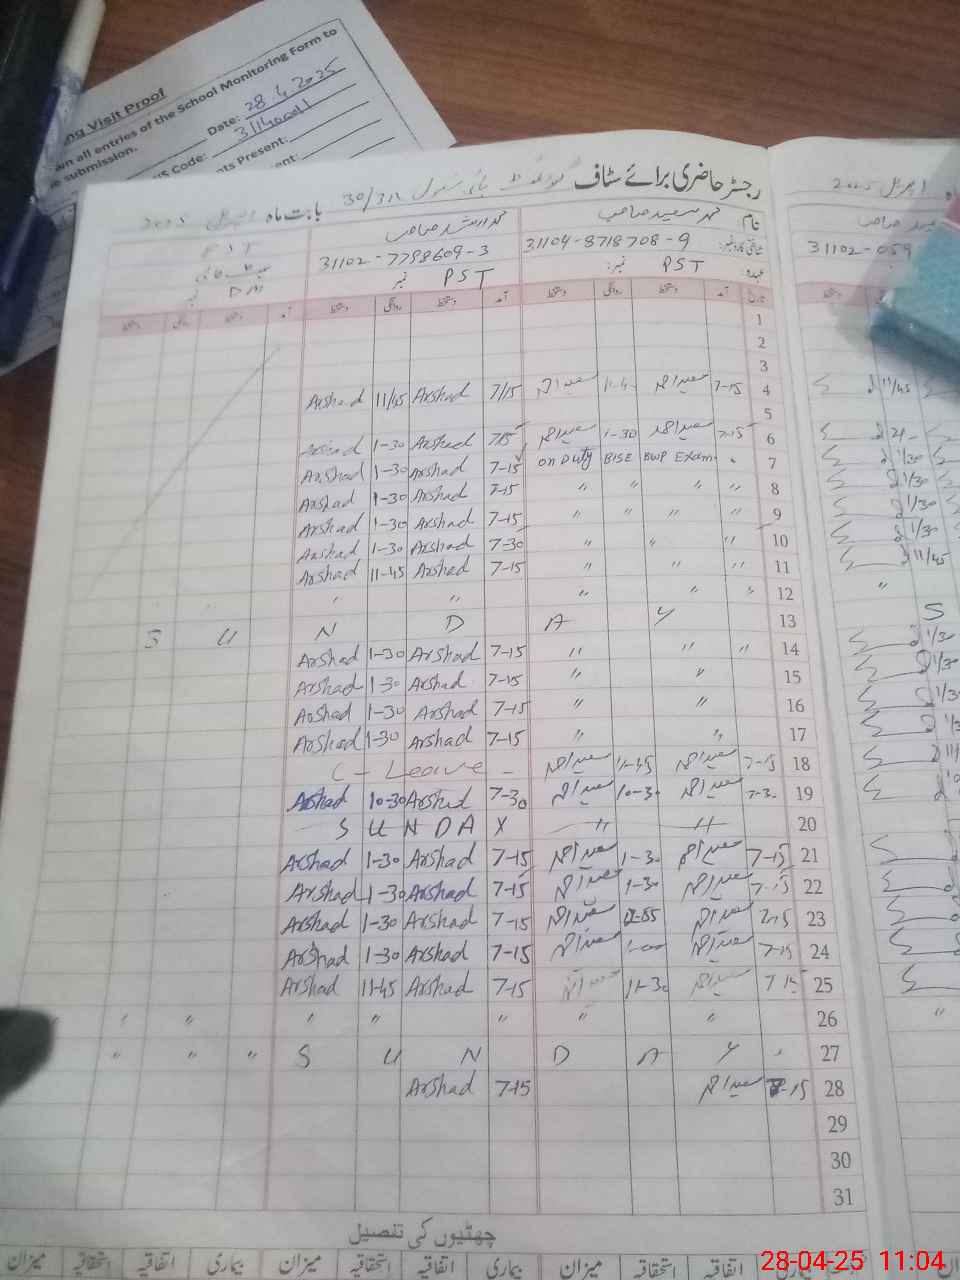 ng Visit Proof
an all entries of the School Monitoring Form to
e submission.
Date: 28.4.2025
IS Code:
nts Present:
ent:
رجسٹر حاضری برائے سٹاف
بابت ماہ اپریل 2025
اپریل 2025
نام محمد سعید صاحب
31104-8718708-9
31102-7798609-3
31102-059
عہدہ: PST نمبر:
PST نمبر
تاریخ آمد دستخط روانگی دستخط آمد دستخط روانگی دستخط آمد دستخط روانگی دستخط
1
2
3
4 7-15 سعید احمد سعید احمد 7/15 Arshad 11/45 Arshad 11/45
5
6 7-15 سعید احمد 1-30 سعید احمد 7/15 Arshad 1-30 Arshad
7 on Duty BISE BWP Exam 7-15 Arshad 1-30 Arshad 1/30
8 " " " " 7-15 Arshad 1-30 Arshad 1/30
9 " " " " 7-15 Arshad 1-30 Arshad 1/30
10 " " " 7-30 Arshad 1-30 Arshad 1/30
11 " " " 7-15 Arshad 11-45 Arshad 11/45
12 " " " " " "
13 S U N D A Y S
14 " " " 7-15 Arshad 1-30 Arshad 1/30
15 " " 7-15 Arshad 1-30 Arshad 1/30
16 " " 7-15 Arshad 1-30 Arshad 1/30
17 " " 7-15 Arshad 1-30 Arshad
18 7-15 سعید احمد 11-45 سعید احمد C - Leave -
19 7-30 سعید احمد 10-30 سعید احمد 7-30 Arshad 10-30 Arshad
20 S U N D A Y " "
21 7-15 سعید احمد 1-30 سعید احمد 7-15 Arshad 1-30 Arshad
22 7-15 سعید احمد 1-30 سعید احمد 7-15 Arshad 1-30 Arshad
23 7-15 سعید احمد سعید احمد 7-15 Arshad 1-30 Arshad
24 7-15 سعید احمد 1-00 سعید احمد 7-15 Arshad 1-30 Arshad
25 7-15 سعید احمد 11-30 سعید احمد 7-15 Arshad 11-45 Arshad
26 " " " " " " " "
27 " " " S U N D A Y
28 7-15 سعید احمد 7-15 Arshad
29
30
31
چھٹیوں کی تفصیل
اتفاقیہ استحقاقیہ میزان بیماری اتفاقیہ استحقاقیہ میزان بیماری اتفاقیہ استحقاقیہ میزان
28-04-25 11:04